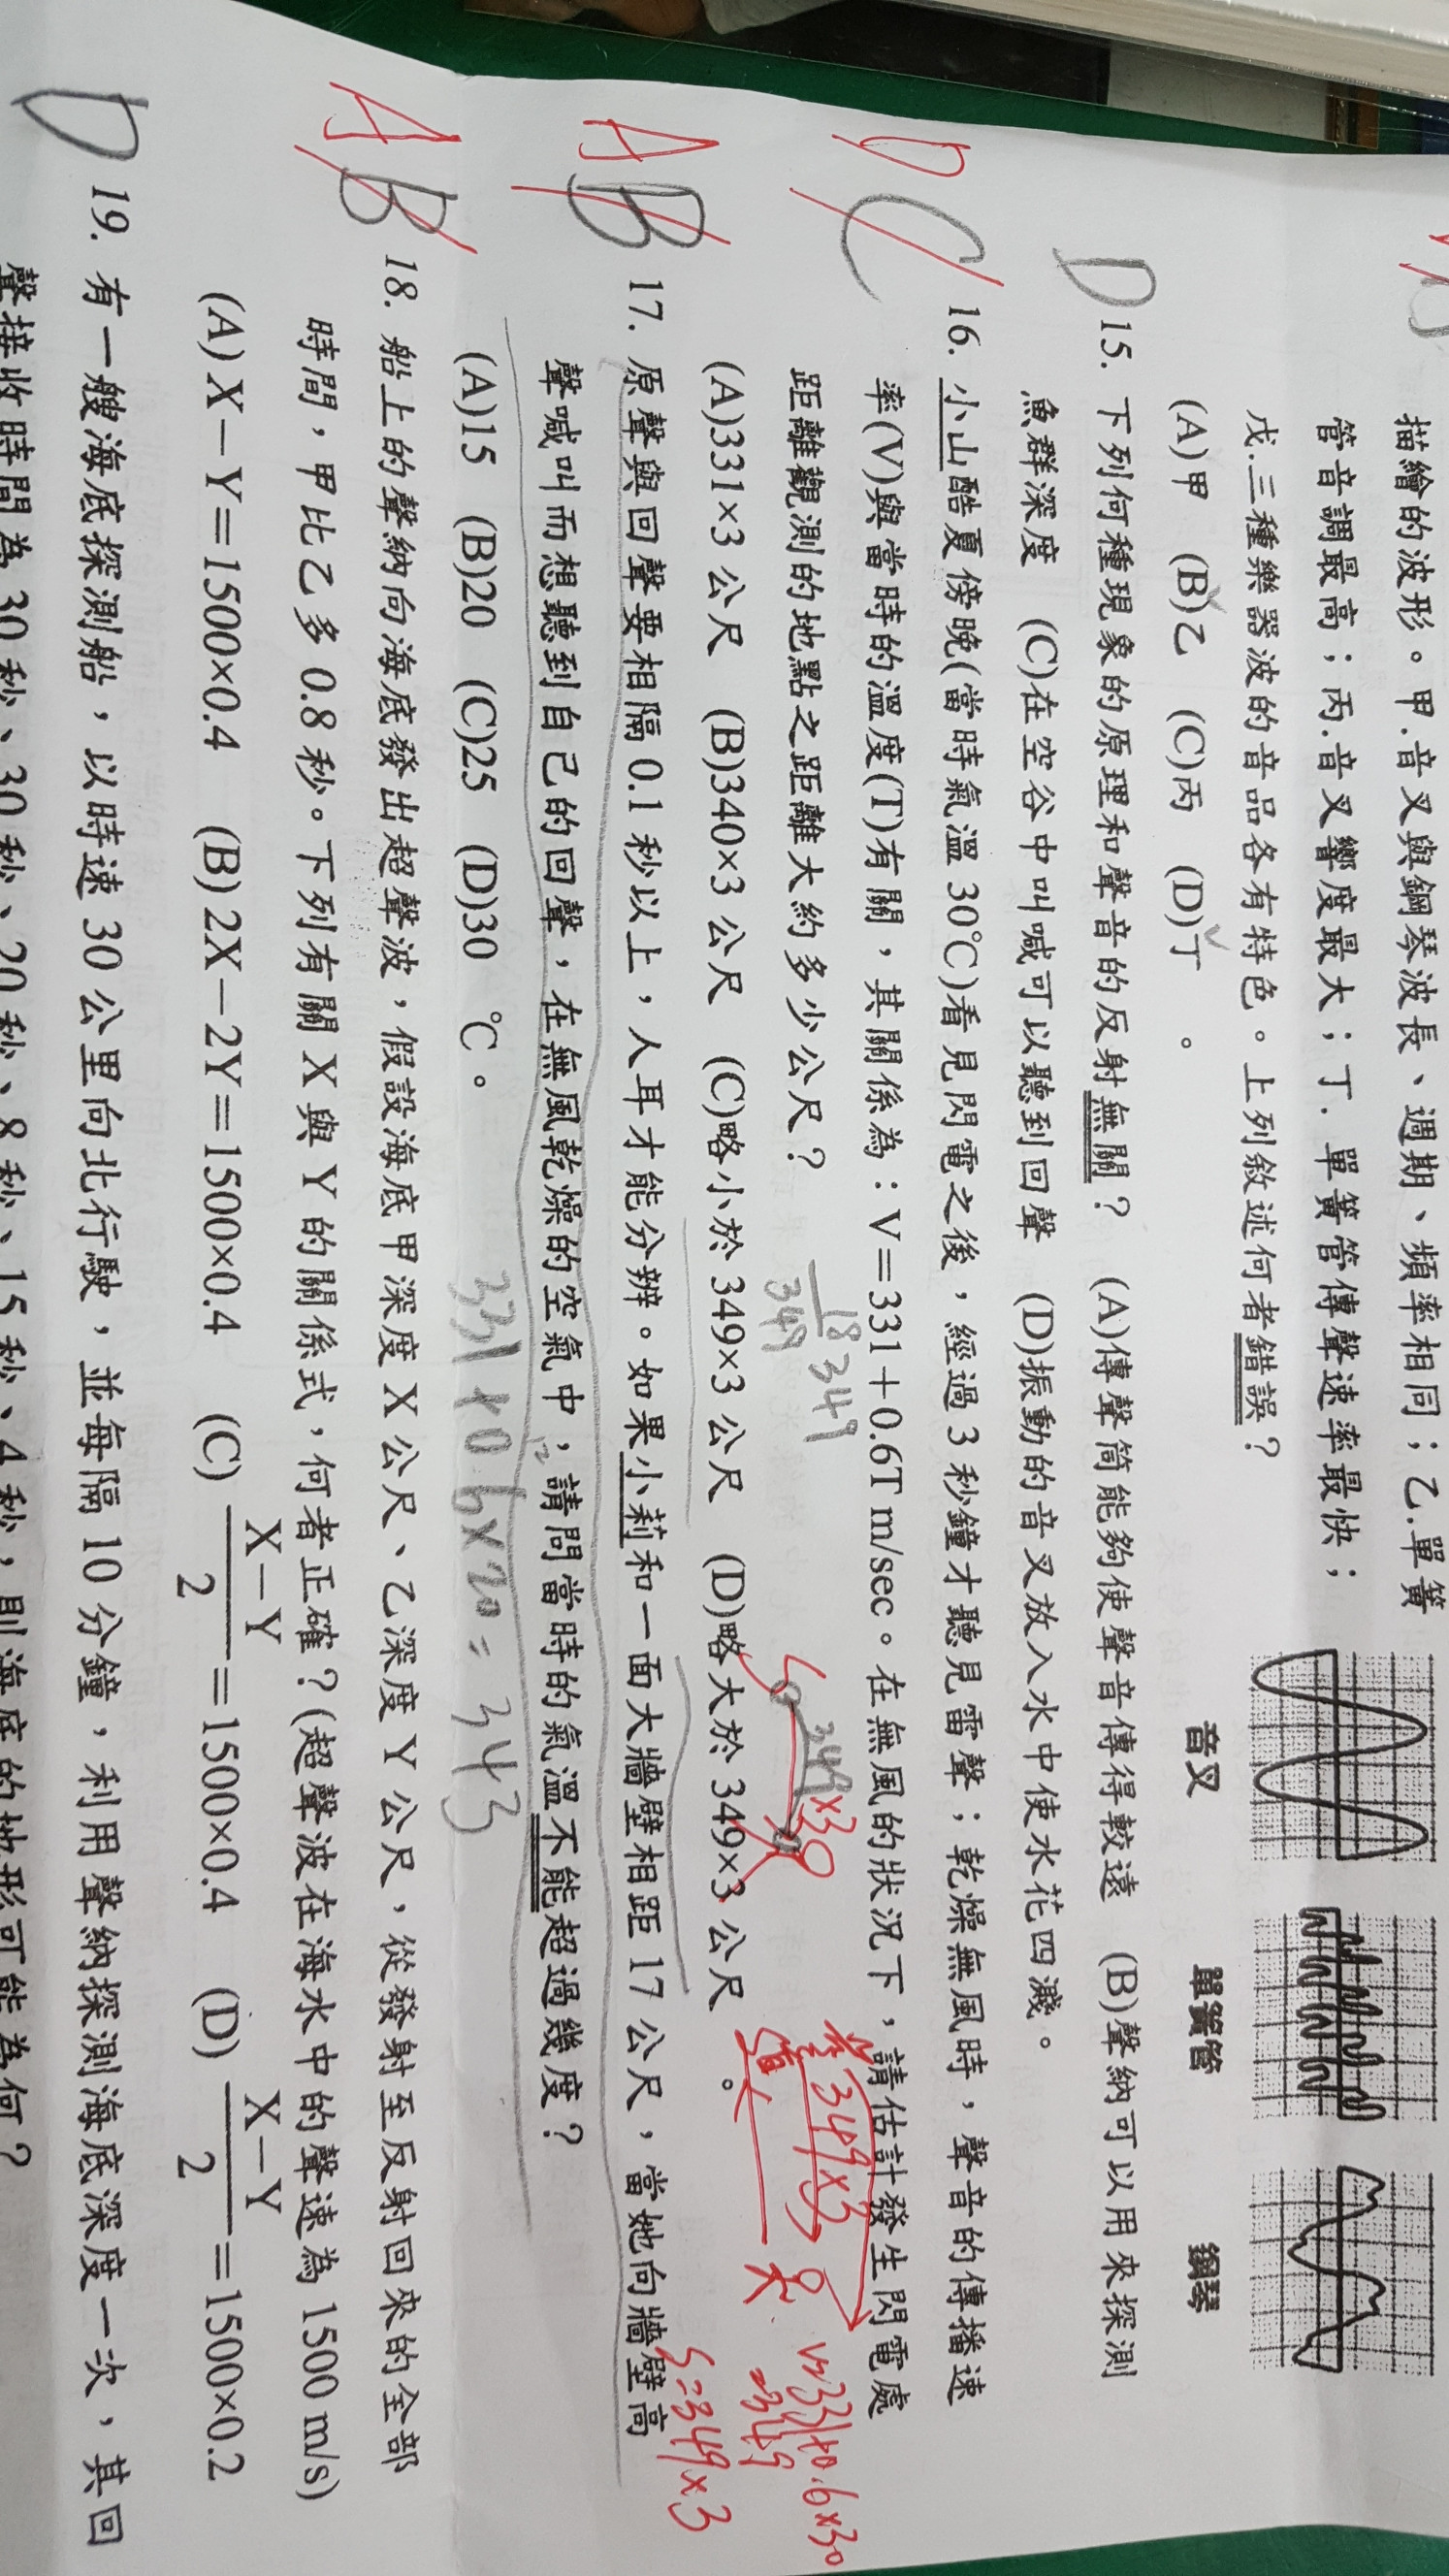 描繪的波形。甲.音叉與鋼琴波長、週期、頻率相同；乙.單簧
管音調最高；丙.音叉響度最大；丁. 單簧管傳聲速率最快；
戊.三種樂器波的音品各有特色。上列敘述何者錯誤？
(A)甲 (B)乙 (C)丙 (D)丁 。
音叉 單簧管 鋼琴
D 15. 下列何種現象的原理和聲音的反射無關？ (A)傳聲筒能夠使聲音傳得較遠 (B)聲納可以用來探測
魚群深度 (C)在空谷中叫喊可以聽到回聲 (D)振動的音叉放入水中使水花四濺。
D C 16. 小山酷夏傍晚(當時氣溫 30℃)看見閃電之後，經過 3 秒鐘才聽見雷聲；乾燥無風時，聲音的傳播速
率(V)與當時的溫度(T)有關，其關係為：V＝331＋0.6T m/sec。在無風的狀況下，請估計發生閃電處
距離觀測的地點之距離大約多少公尺？
18
349
349
349×3
349×3
V=331+0.6×30
=349
S=349×3
(A)331×3 公尺 (B)340×3 公尺 (C)略小於 349×3 公尺 (D)略大於 349×3 公尺 。
A B 17. 原聲與回聲要相隔 0.1 秒以上，人耳才能分辨。如果小莉和一面大牆壁相距 17 公尺，當她向牆壁高
聲喊叫而想聽到自己的回聲，在無風乾燥的空氣中，請問當時的氣溫不能超過幾度？
12
(A)15 (B)20 (C)25 (D)30 ℃。
331+0.6×20=343
A B 18. 船上的聲納向海底發出超聲波，假設海底甲深度 X 公尺、乙深度 Y 公尺，從發射至反射回來的全部
時間，甲比乙多 0.8 秒。下列有關 X 與 Y 的關係式，何者正確？(超聲波在海水中的聲速為 1500 m/s)
(A) X－Y＝1500×0.4 (B) 2X－2Y＝1500×0.4 (C) X－Y/2＝1500×0.4 (D) X－Y/2＝1500×0.2
D 19. 有一艘海底探測船，以時速 30 公里向北行駛，並每隔 10 分鐘，利用聲納探測海底深度一次，其回
聲接收時間為 30 秒、30 秒、20 秒、8 秒、15 秒、4 秒，則海底的地形可能為何？